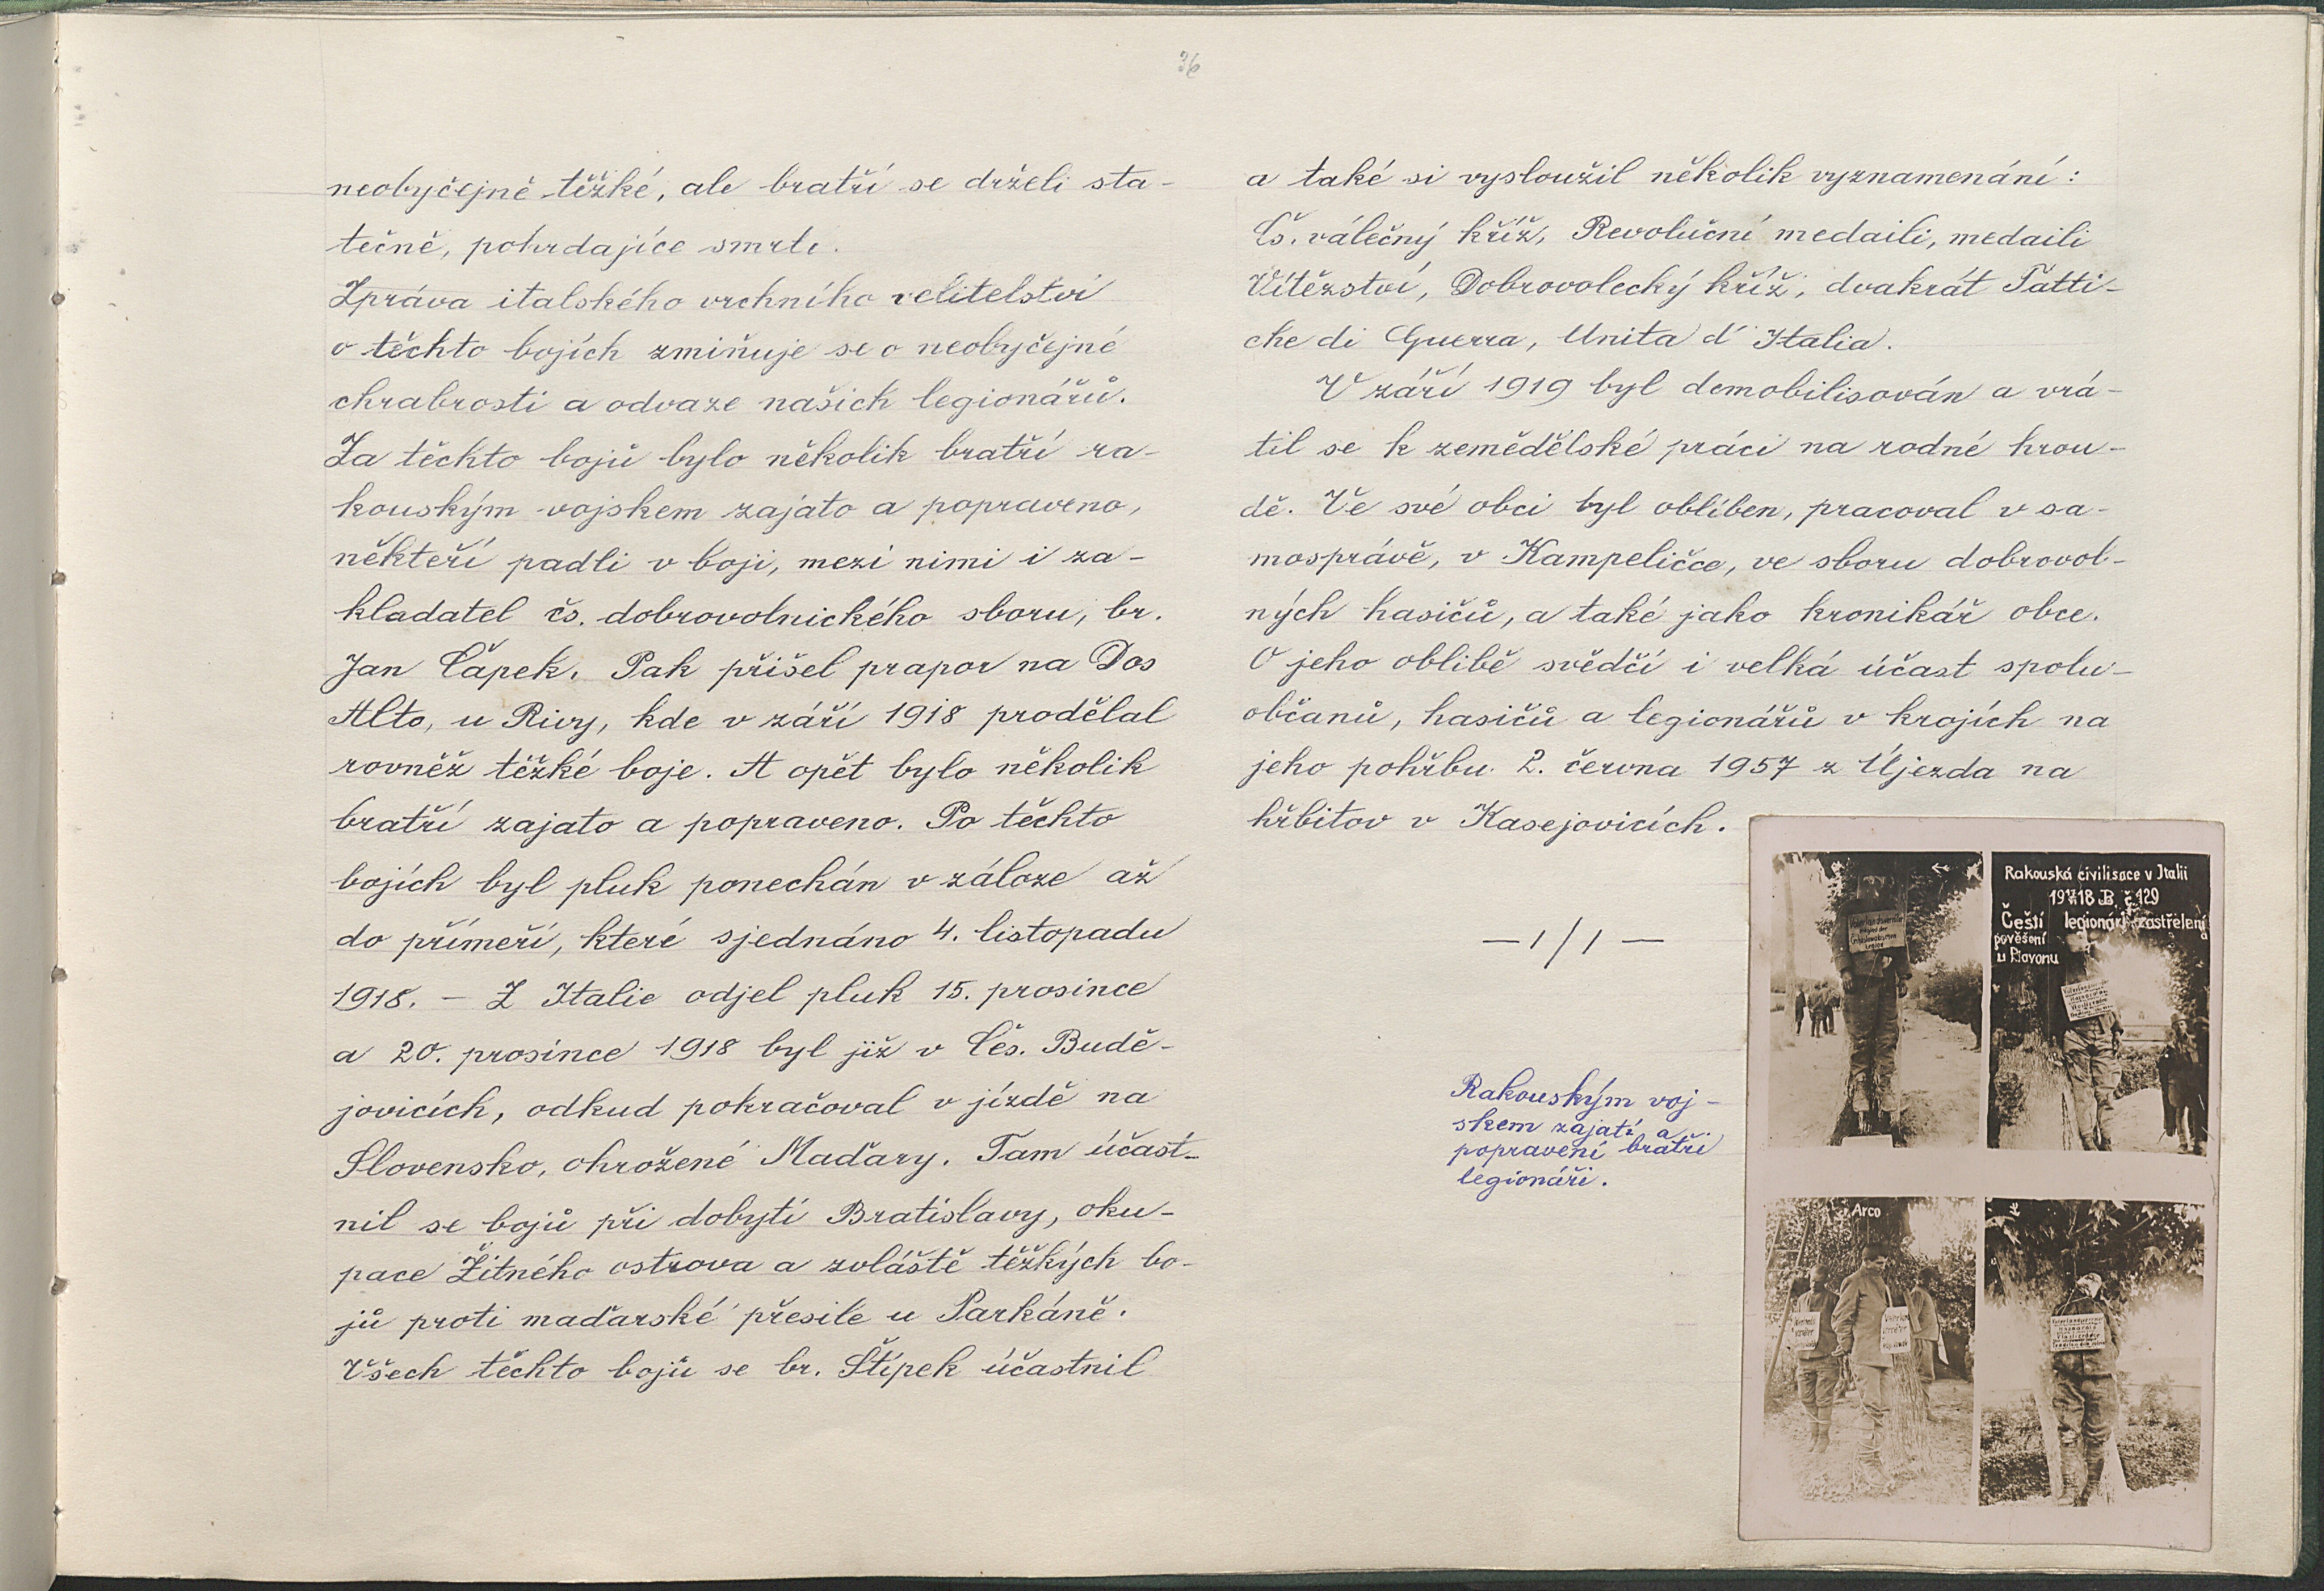 36
neobyčejně těžké, ale bratří se drželi sta-
tečně, pohrdajíce smrtí.
Zpráva italského vrchního velitelství
o těchto bojích zmiňuje se o neobyčejné
chrabrosti a odvaze našich legionářů.
Za těchto bojů bylo několik bratří ra-
kouským vojskem zajato a popraveno,
někteří padli v boji, mezi nimi i za-
kladatel čs. dobrovolnického sboru, br.
Jan Čapek. Pak přišel prapor na Dos
Alto, u Rivy, kde v září 1918 prodělal
rovněž těžké boje. A opět bylo několik
bratří zajato a popraveno. Po těchto
bojích byl pluk ponechán v záloze až
do příměří, které sjednáno 4. listopadu
1918. - Z Italie odjel pluk 15. prosince
a 20. prosince 1918 byl již v Čes. Budě-
jovicích, odkud pokračoval v jízdě na
Slovensko, ohrožené Maďary. Tam účast-
nil se bojů při dobytí Bratislavy, oku-
pace Žitného ostrova a zvláště těžkých bo-
jů proti maďarské přesile u Parkáně.
Všech těchto bojů se br. Štípek účastnil
a také si vysloužil několik vyznamenání:
Čs. válečný kříž, Revoluční medaili, medaili
Vítězství, Dobrovolecký kříž, dvakrát Fatti-
che di Guerra, Unita d' Italia.
V září 1919 byl demobilisován a vrá-
til se k zemědělské práci na rodné hrou-
dě. Ve své obci byl oblíben, pracoval v sa-
mosprávě, v Kampeličce, ve sboru dobrovol-
ných hasičů, a také jako kronikář obce.
O jeho oblibě svědčí i velká účast spolu-
občanů, hasičů a legionářů v krojích na
jeho pohřbu 2. června 1957 z Újezda na
hřbitov v Kasejovicích.
Rakouským voj-
skem zajatí a
popravení bratři
legionáři.
Rakouská civilisace v Italii
1917/18 B. č. 129
Čeští legionáři zastřelení a
pověšení
u Piavonu
Arco